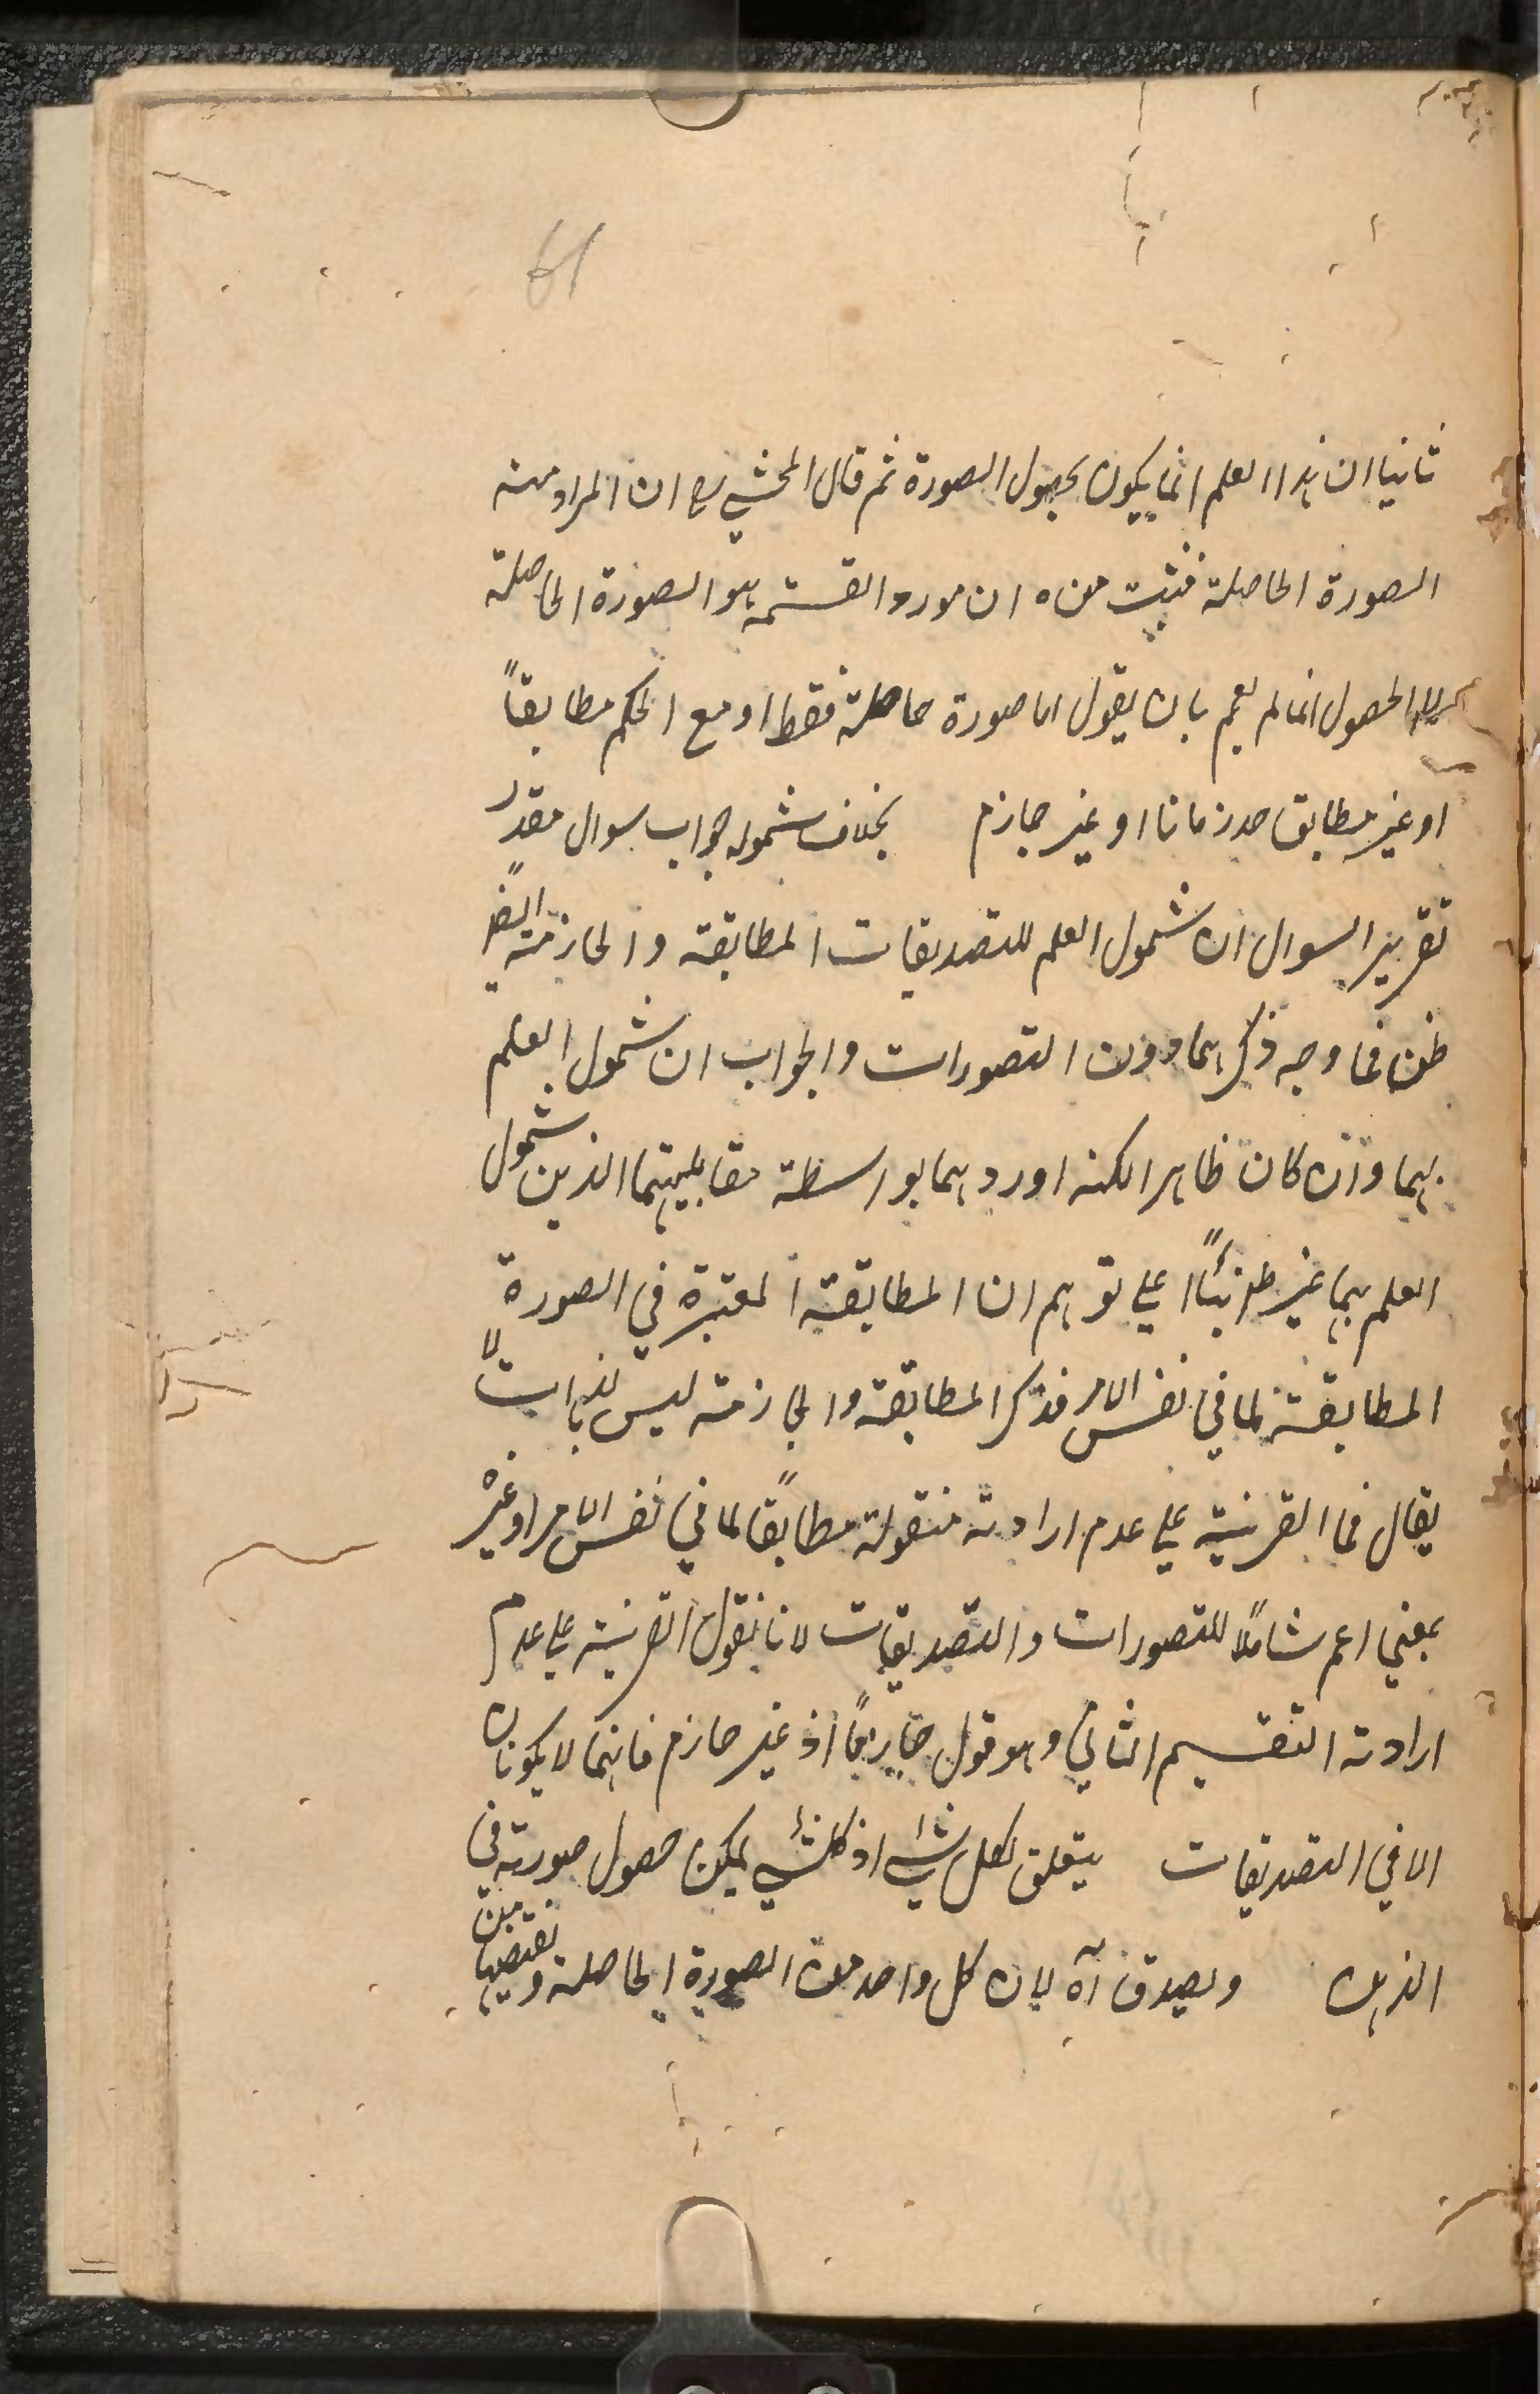 61
ثانيا ان هذا العلم انما يكون بحصول الصورة ثم قال المحشي رح ان المراد منه
الصورة الحاصلة فثبت منه ان مورد القسمة هو الصورة الحاصلة
الحصول انما لم يعم بان يقول اما صورة حاصلة فقط او مع الحكم مطابقاً
او غير مطابق او غير جازم بخلاف شموله جواب سوال مقدر
تقرير السوال ان شمول العلم للتصديقات المطابقة والجازمة ايضاً
فما وجه ذكرهما دون التصورات والجواب ان شمول العلم
بهما وان كان ظاهرا لكنه اوردهما بواسطة مقابليهما الذين شمول
العلم بهما غير على توهم ان المطابقة المعتبرة في الصورة
المطابقة لما في نفس الامر فذكر المطابقة والجازمة ليس بالذات لا
يقال فما القرينة على عدم ارادته منقولة مطابقًا لما في نفس الامر او غيره
بمعني اعم شاملاً للتصورات والتصديقات لانا نقول القرينة على عدم
ارادته التقسيم الثاني وهو قول او غير جازم فانهما لا يكونان
الا في التصديقات يتعلق بكل شئ اذ كل شئ يمكن حصول صورته في
الذهن ويصدق آه لان كل واحد من الصورة الحاصلة و